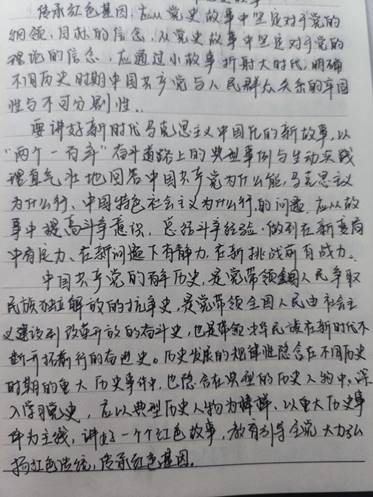 传承红色基因,应从党史故事中坚定对于党的
纲领、目标的信念,从党史故事中坚定对于党的
理论的信念,应通过小故事折射大时代,明确
不同历史时期中国共产党与人民群众关系的牢固
性与不可分割性。
要讲好新时代马克思主义中国化的新故事,以
“两个一百年”奋斗道路上的典型事例与生动实践
理直气壮地回答中国共产党为什么能,马克思主义
为什么行、中国特色社会主义为什么行的问题,应从故
事中提高斗争意识,总结斗争经验,做到在新变局
中有定力、在新问题下有静力,在新挑战前有战力。
中国共产党的百年历史,是党带领全国人民争取
民族独立解放的抗争史,是党带领全国人民由社会主
义建设到改革开放的奋斗史,也是中华民族在新时代不
断开拓前行的奋进史。历史发展的规律性隐含在不同历史
时期的重大历史事件中,也隐含在典型的历史人物中,深
入学习党史,应以典型历史人物为,以重大历史事
件为主线,讲好一个个红色故事,教育引导全党大力弘
扬红色传统,传承红色基因。